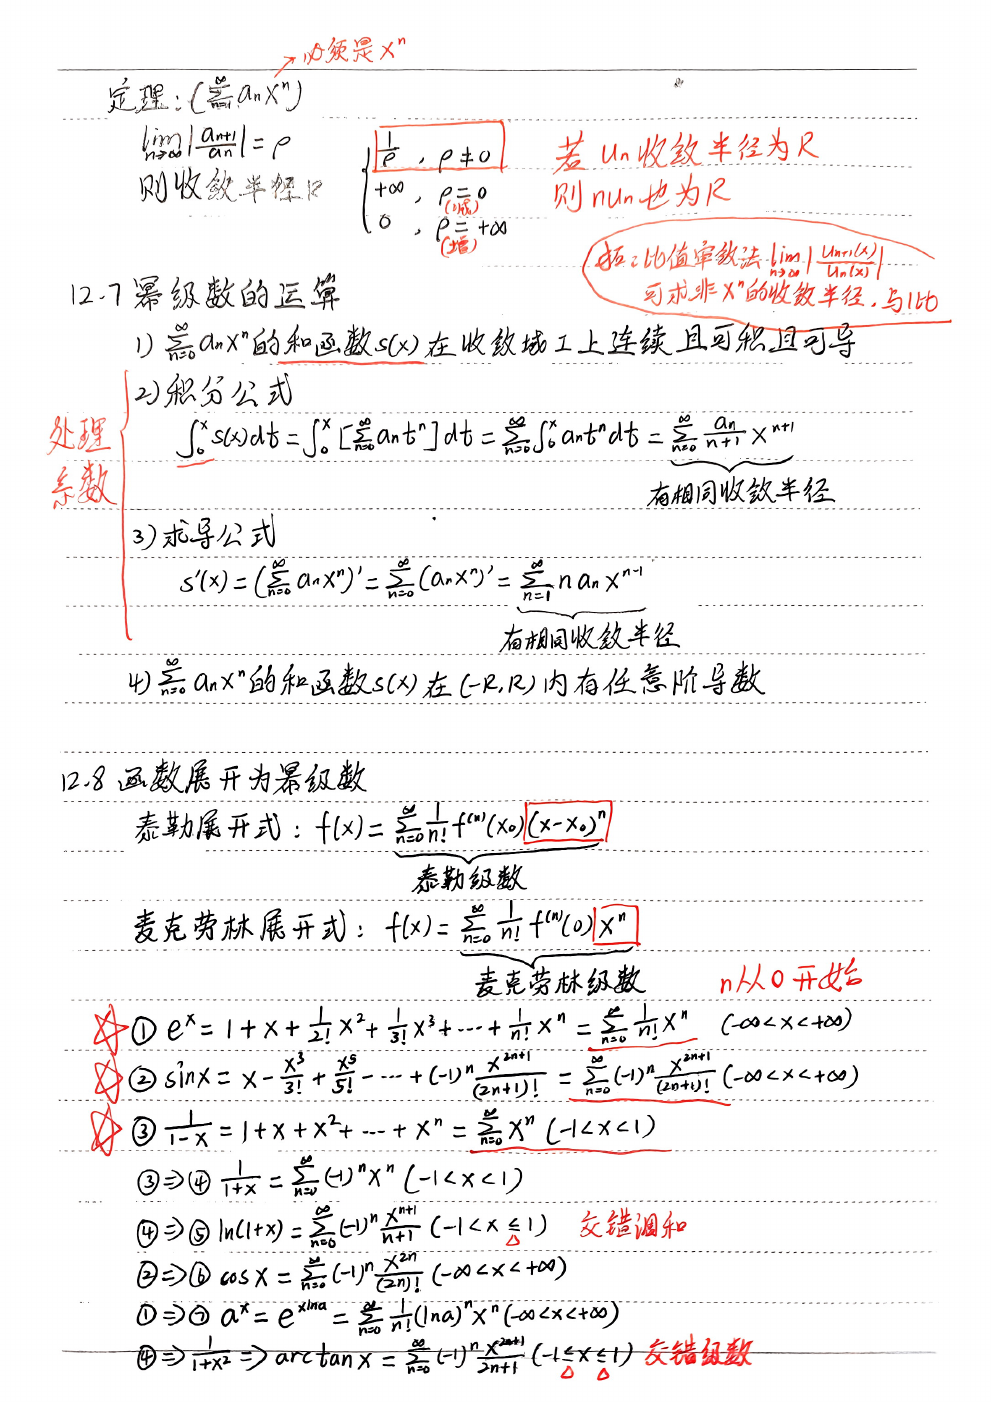 必须是xⁿ
定理：(∑_{n=1}^∞ aₙxⁿ)
lim_{n→∞}|aₙ₊₁/aₙ| = ρ
则收敛半径R
1/ρ , ρ≠0
+∞ , ρ=0
0 , ρ=+∞
(增)
若Un收敛半径为R
则nUn也为R
拓：比值审敛法 lim_{n→∞}|Uₙ₊₁(x)/Uₙ(x)|
可求非xⁿ的收敛半径，与1比
12.7 幂级数的运算
1) ∑_{n=0}^∞ aₙxⁿ的和函数s(x)在收敛域I上连续且可积且可导
处理
系数
2) 积分公式
∫₀ˣ s(x)dt = ∫₀ˣ [∑_{n=0}^∞ aₙtⁿ]dt = ∑_{n=0}^∞ ∫₀ˣ aₙtⁿdt = ∑_{n=0}^∞ aₙ/(n+1) xⁿ⁺¹
有相同收敛半径
3) 求导公式
s'(x) = (∑_{n=0}^∞ aₙxⁿ)' = ∑_{n=0}^∞ (aₙxⁿ)' = ∑_{n=1}^∞ n aₙ xⁿ⁻¹
有相同收敛半径
4) ∑_{n=0}^∞ aₙxⁿ的和函数s(x)在(-R,R)内有任意阶导数
12.8 函数展开为幂级数
泰勒展开式：f(x) = ∑_{n=0}^∞ 1/n! f⁽ⁿ⁾(x₀)(x-x₀)ⁿ
泰勒级数
麦克劳林展开式：f(x) = ∑_{n=0}^∞ 1/n! f⁽ⁿ⁾(0) xⁿ
麦克劳林级数
n从0开始
① eˣ = 1+x+1/2! x²+1/3! x³+…+1/n! xⁿ = ∑_{n=0}^∞ 1/n! xⁿ (-∞<x<+∞)
② sinx = x - x³/3! + x⁵/5! - … + (-1)ⁿ x²ⁿ⁺¹/(2n+1)! = ∑_{n=0}^∞ (-1)ⁿ x²ⁿ⁺¹/(2n+1)! (-∞<x<+∞)
③ 1/(1-x) = 1+x+x²+…+xⁿ = ∑_{n=0}^∞ xⁿ (-1<x<1)
③⇒④ 1/(1+x) = ∑_{n=0}^∞ (-1)ⁿxⁿ (-1<x<1)
④⇒⑤ ln(1+x) = ∑_{n=0}^∞ (-1)ⁿ xⁿ⁺¹/(n+1) (-1<x≤1) 交错调和
②⇒⑥ cosx = ∑_{n=0}^∞ (-1)ⁿ x²ⁿ/(2n)! (-∞<x<+∞)
①⇒⑦ aˣ = eˣˡⁿᵃ = ∑_{n=0}^∞ 1/n! (lna)ⁿxⁿ (-∞<x<+∞)
④⇒ 1/(1+x²) ⇒ arctanx = ∑_{n=0}^∞ (-1)ⁿ x²ⁿ⁺¹/(2n+1) (-1≤x≤1) 交错级数